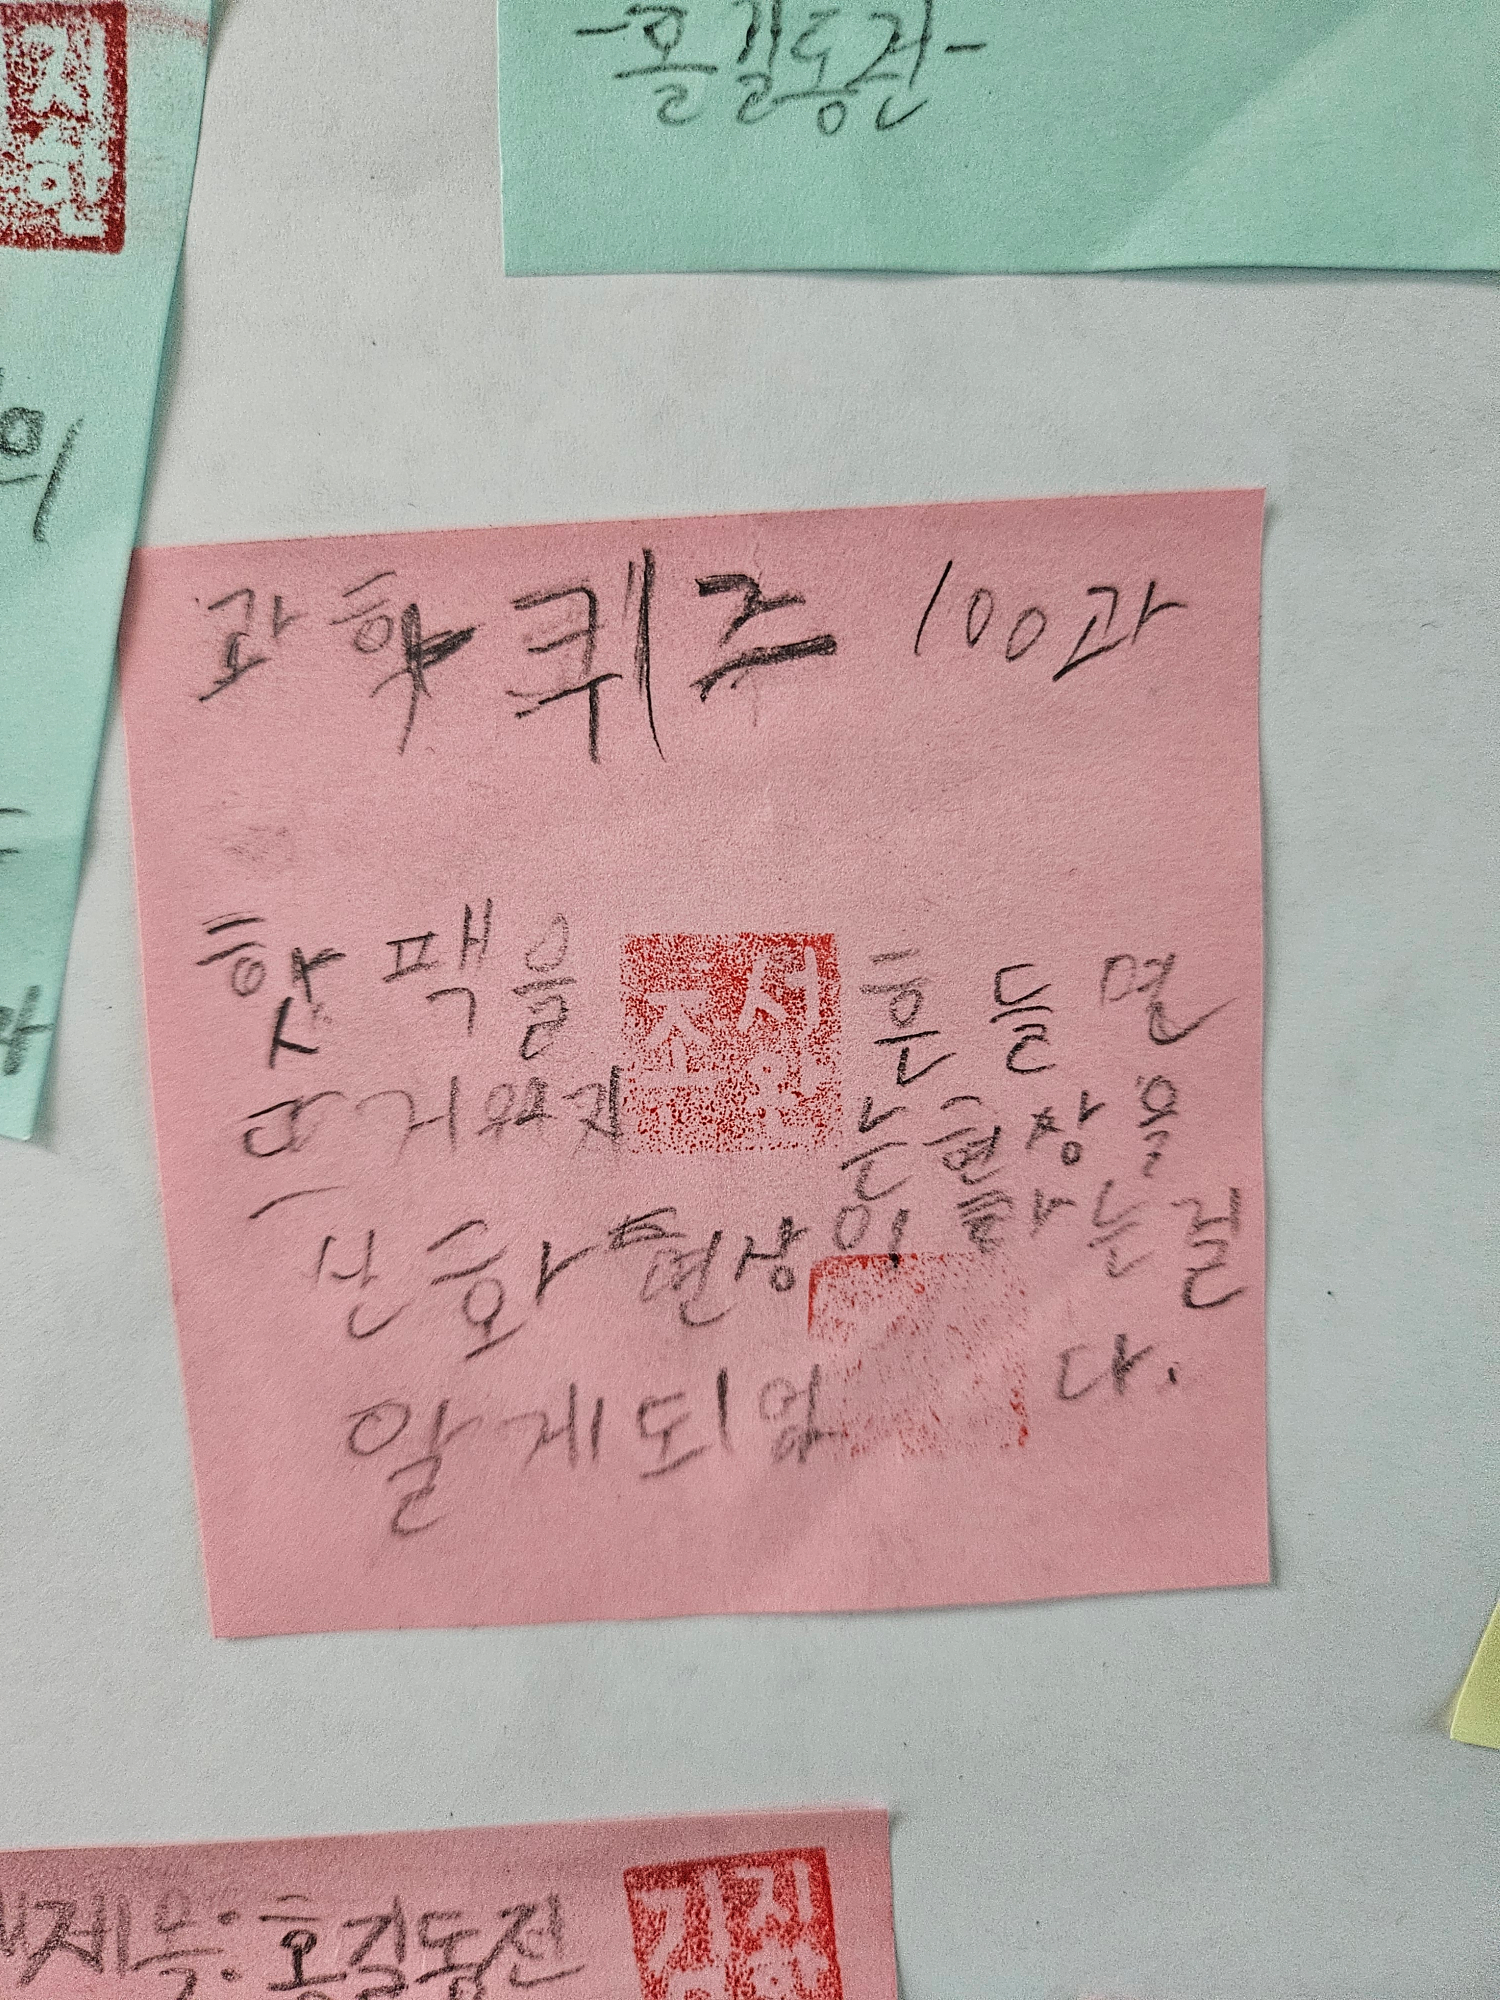 -홍길동전-
지한
의
과학퀴즈 100과
핫팩을 흔들면
뜨거워지는현상을
산화현상이라는걸
알게되었다.
조서완
제목: 홍길동전